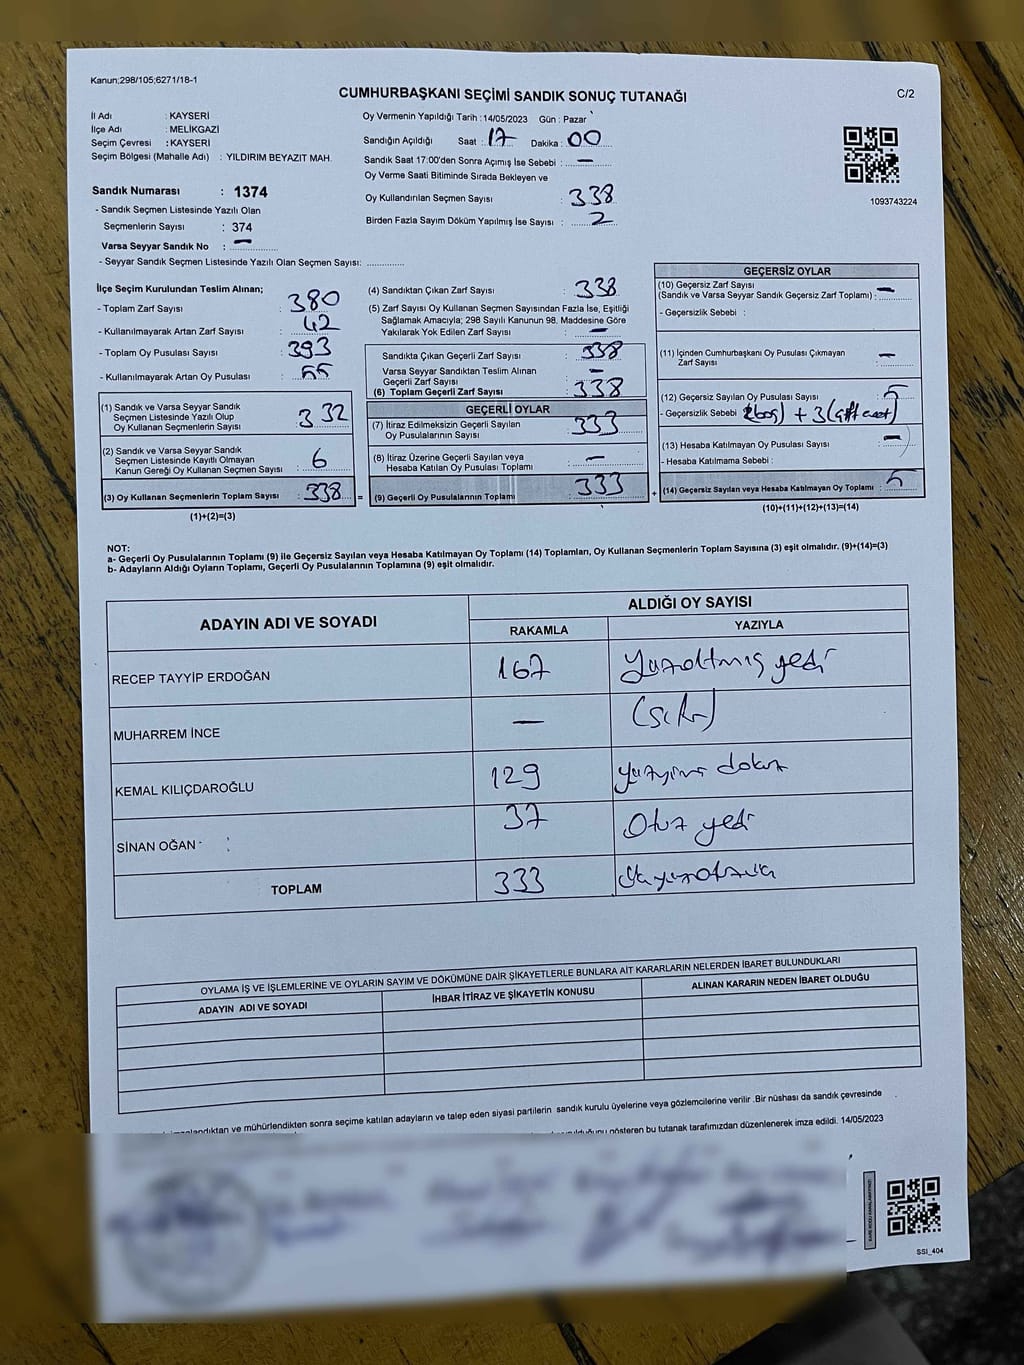 Kanun;298/105;6271/18-1
CUMHURBAŞKANI SEÇİMİ SANDIK SONUÇ TUTANAĞI
C/2
İl Adı : KAYSERİ
İlçe Adı : MELİKGAZİ
Seçim Çevresi : KAYSERİ
Seçim Bölgesi (Mahalle Adı) : YILDIRIM BEYAZIT MAH.
Sandık Numarası : 1374
- Sandık Seçmen Listesinde Yazılı Olan
Seçmenlerin Sayısı : 374
Varsa Seyyar Sandık No : —
- Seyyar Sandık Seçmen Listesinde Yazılı Olan Seçmen Sayısı: ..............
Oy Vermenin Yapıldığı Tarih : 14/05/2023 Gün : Pazar
Sandığın Açıldığı Saat : 17 Dakika : 00
Sandık Saat 17:00'den Sonra Açımış İse Sebebi : —
Oy Verme Saati Bitiminde Sırada Bekleyen ve
Oy Kullandırılan Seçmen Sayısı : 338
Birden Fazla Sayım Döküm Yapılmış İse Sayısı : 2
1093743224
İlçe Seçim Kurulundan Teslim Alınan;
- Toplam Zarf Sayısı : 380
- Kullanılmayarak Artan Zarf Sayısı : 42
- Toplam Oy Pusulası Sayısı : 393
- Kullanılmayarak Artan Oy Pusulası : 55
(1) Sandık ve Varsa Seyyar Sandık
Seçmen Listesinde Yazılı Olup
Oy Kullanan Seçmenlerin Sayısı : 332
(2) Sandık ve Varsa Seyyar Sandık
Seçmen Listesinde Kayıtlı Olmayan
Kanun Gereği Oy Kullanan Seçmen Sayısı : 6
(3) Oy Kullanan Seçmenlerin Toplam Sayısı : 338 =
(1)+(2)=(3)
(4) Sandıktan Çıkan Zarf Sayısı : 338
(5) Zarf Sayısı Oy Kullanan Seçmen Sayısından Fazla İse, Eşitliği
Sağlamak Amacıyla; 298 Sayılı Kanunun 98. Maddesine Göre
Yakılarak Yok Edilen Zarf Sayısı : —
Sandıkta Çıkan Geçerli Zarf Sayısı : 338
Varsa Seyyar Sandıktan Teslim Alınan
Geçerli Zarf Sayısı : —
(6) Toplam Geçerli Zarf Sayısı : 338
GEÇERLİ OYLAR
(7) İtiraz Edilmeksizin Geçerli Sayılan
Oy Pusulalarının Sayısı : 333
(8) İtiraz Üzerine Geçerli Sayılan veya
Hesaba Katılan Oy Pusulası Toplamı : —
(9) Geçerli Oy Pusulalarının Toplamı : 333 +
GEÇERSİZ OYLAR
(10) Geçersiz Zarf Sayısı
(Sandık ve Varsa Seyyar Sandık Geçersiz Zarf Toplamı) : —
- Geçersizlik Sebebi :
(11) İçinden Cumhurbaşkanı Oy Pusulası Çıkmayan
Zarf Sayısı : —
(12) Geçersiz Sayılan Oy Pusulası Sayısı : 5
- Geçersizlik Sebebi : 2(boş) + 3(
(13) Hesaba Katılmayan Oy Pusulası Sayısı : —
- Hesaba Katılmama Sebebi :
(14) Geçersiz Sayılan veya Hesaba Katılmayan Oy Toplamı : 5
(10)+(11)+(12)+(13)=(14)
NOT:
a- Geçerli Oy Pusulalarının Toplamı (9) ile Geçersiz Sayılan veya Hesaba Katılmayan Oy Toplamı (14) Toplamları, Oy Kullanan Seçmenlerin Toplam Sayısına (3) eşit olmalıdır. (9)+(14)=(3)
b- Adayların Aldığı Oyların Toplamı, Geçerli Oy Pusulalarının Toplamına (9) eşit olmalıdır.
ADAYIN ADI VE SOYADI
ALDIĞI OY SAYISI
RAKAMLA YAZIYLA
RECEP TAYYİP ERDOĞAN 167 Yüzaltmış yedi
MUHARREM İNCE — (sıfır)
KEMAL KILIÇDAROĞLU 129 yüzyirmi dokuz
SİNAN OĞAN 37 Otuz yedi
TOPLAM 333
OYLAMA İŞ VE İŞLEMLERİNE VE OYLARIN SAYIM VE DÖKÜMÜNE DAİR ŞİKAYETLERLE BUNLARA AİT KARARLARIN NELERDEN İBARET BULUNDUKLARI
ADAYIN ADI VE SOYADI İHBAR İTİRAZ VE ŞİKAYETİN KONUSU ALINAN KARARIN NEDEN İBARET OLDUĞU
mühürlendikten sonra seçime katılan adayların ve talep eden siyasi partilerin sandık kurulu üyelerine veya gözlemcilerine verilir .Bir nüshası da sandık çevresinde
gösteren bu tutanak tarafımızdan düzenlenerek imza edildi. 14/05/2023
SSI_404